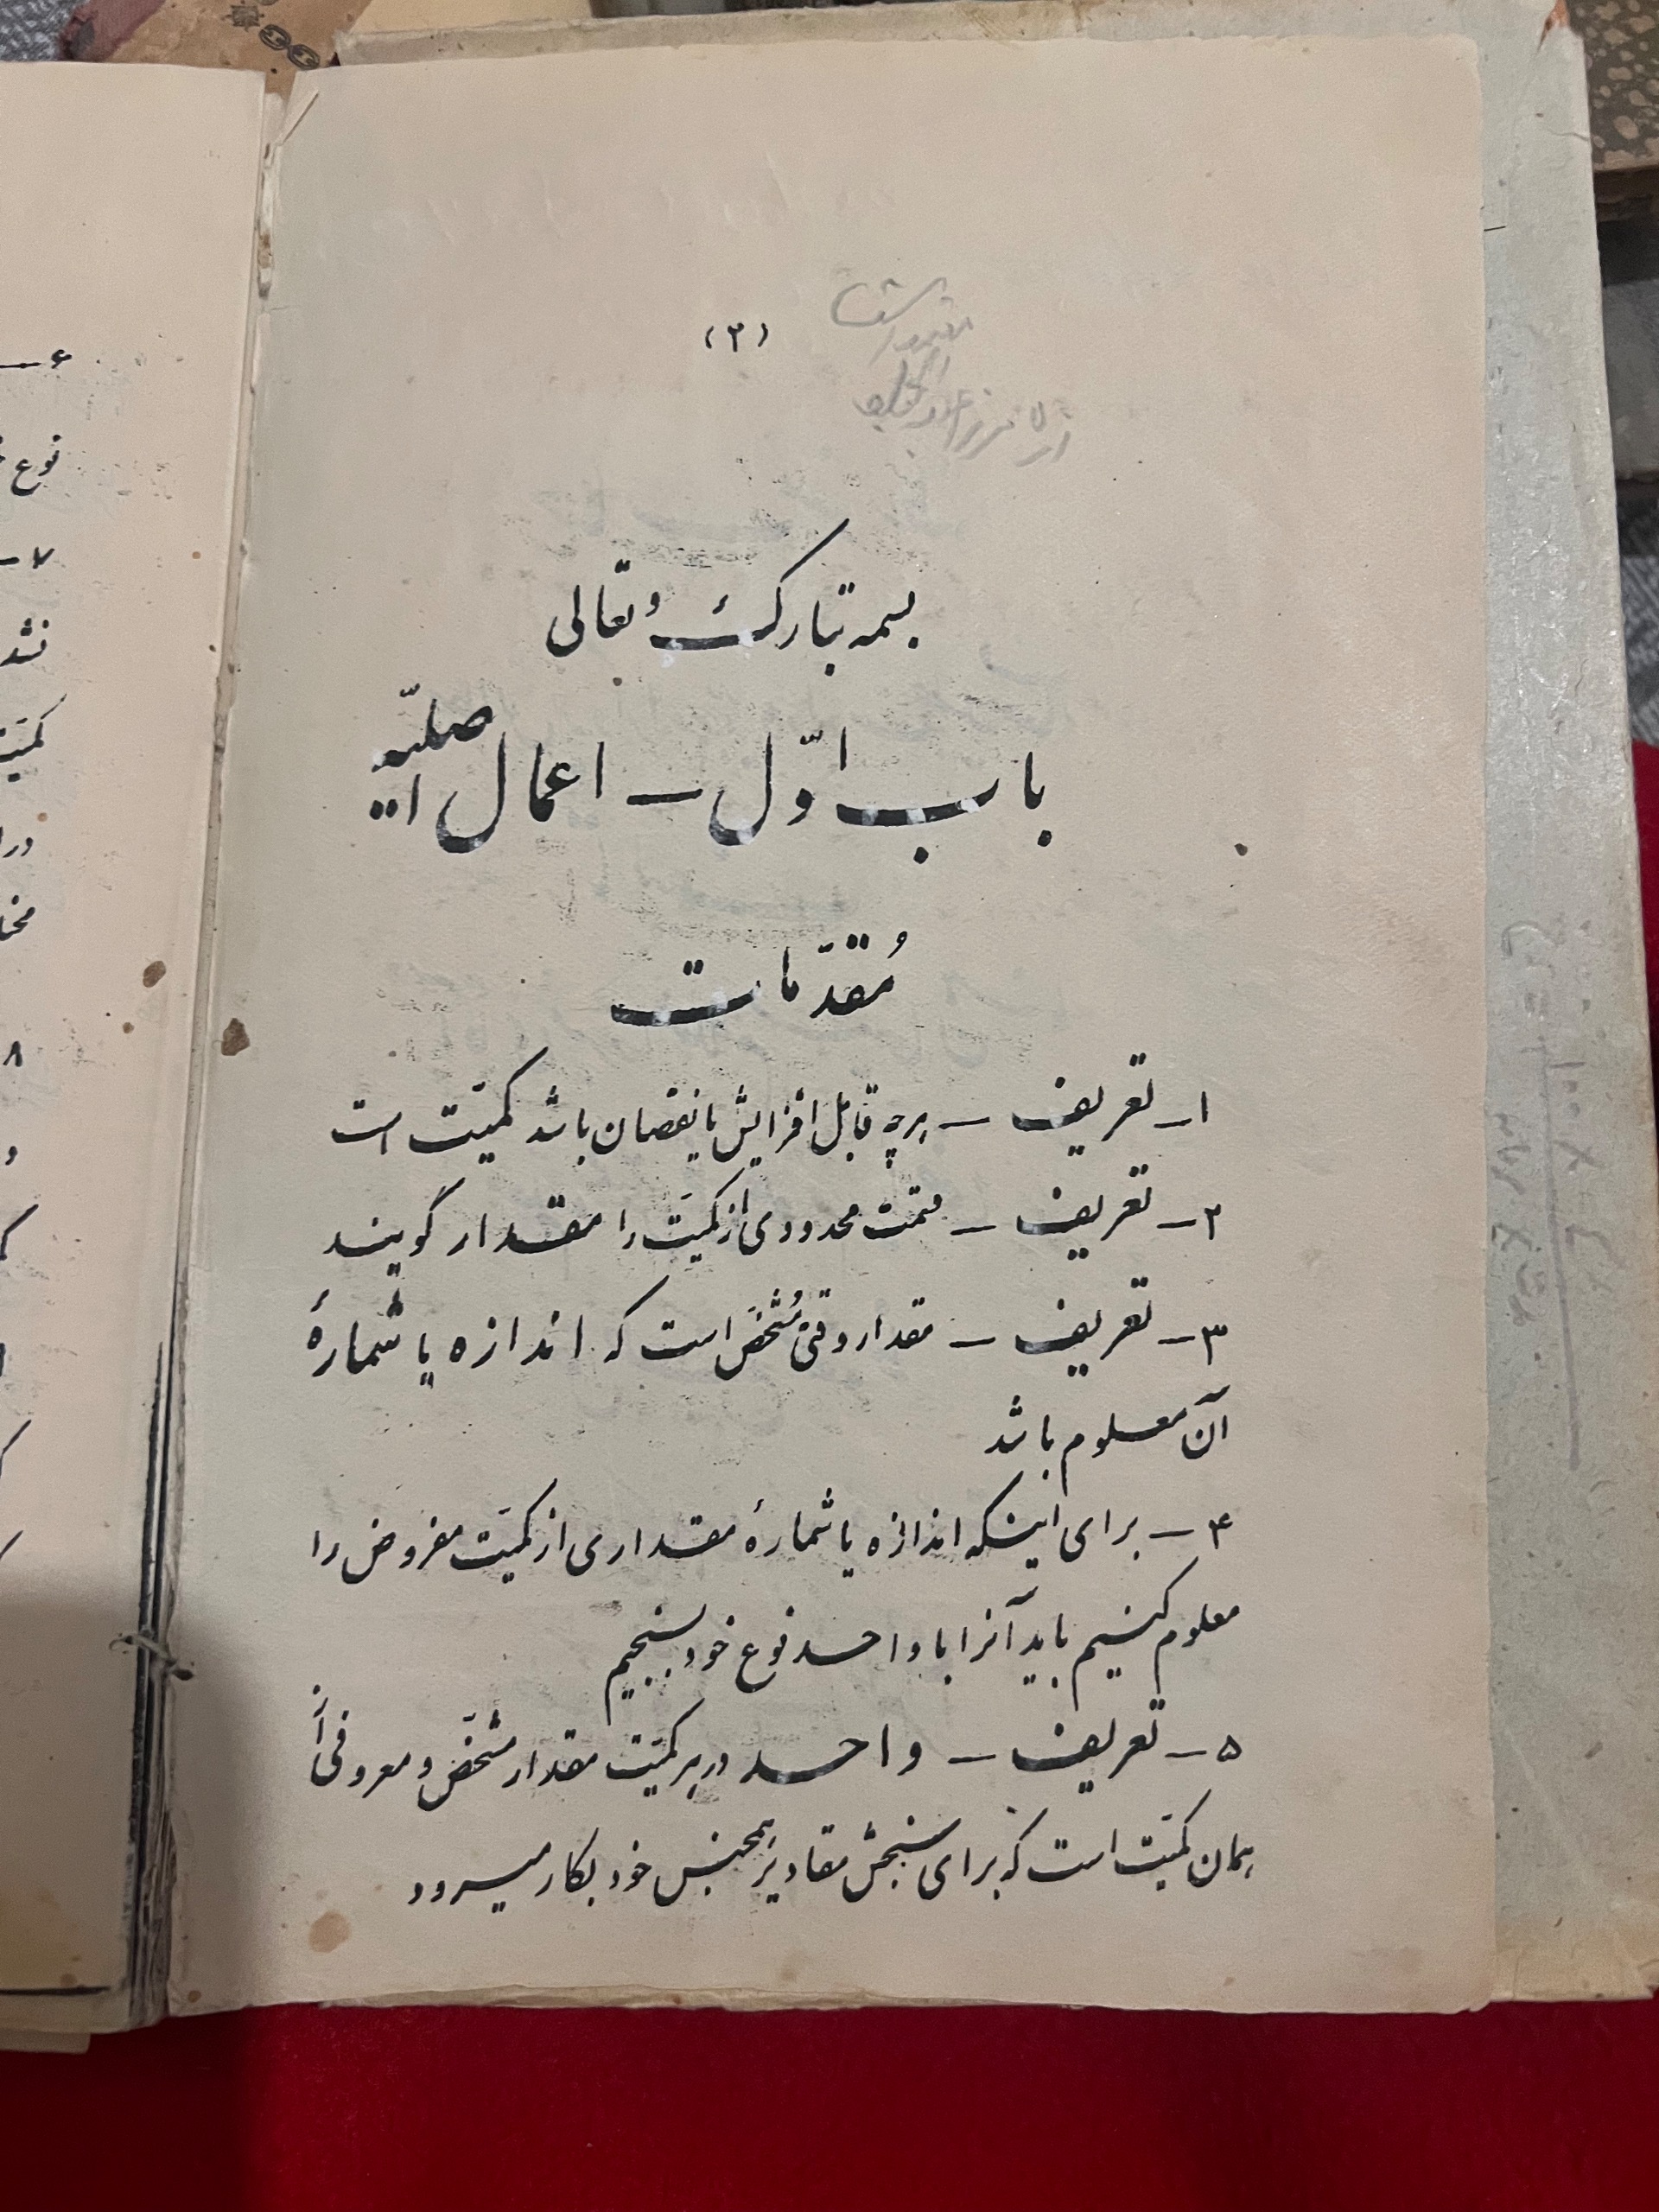 (۲)
بسمه تبارک و تعالی
باب اوّل ـ اعمال اصلیّه
مُقدّمات
۱ـ تعریف ـ هرچه قابل افزایش یا نقصان باشد کمیّت است
۲ـ تعریف ـ قسمت محدودی از کمیّت را مقدار گویند
۳ـ تعریف ـ مقدار وقتی مُشخّص است که اندازه یا شمارهٔ
آن معلوم باشد
۴ـ برای اینکه اندازه یا شمارهٔ مقداری از کمیّت مفروض را
معلوم کنیم باید آنرا با واحد نوع خود بسنجیم
۵ـ تعریف ـ واحد در هر کمیّت مقدار مشخّص و معروفی از
همان کمیّت است که برای سنجش مقادیر همجنس خود بکار میرود